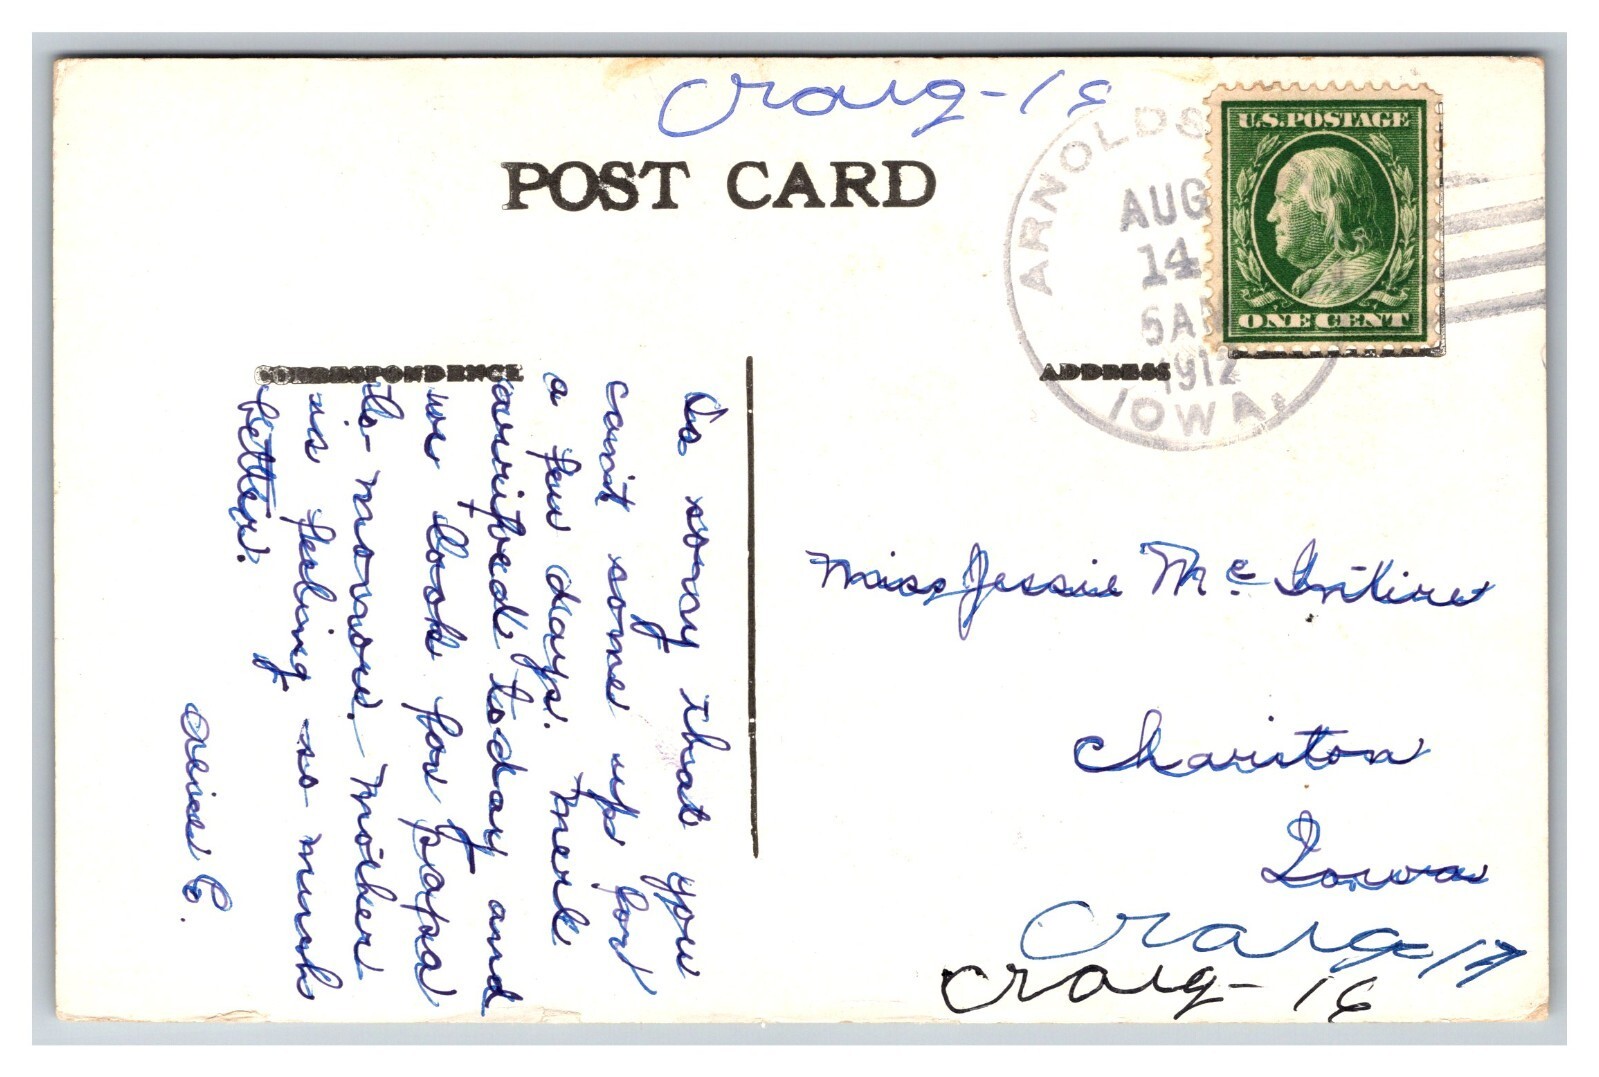 Craig-18
POST CARD
U.S. POSTAGE
ONE CENT
ARNOLDS
AUG
14
5 A
1912
IOWA.
CORRESPONDENCE
ADDRESS
Is sorry that you
can't some up for
a few days. Merk
arrived to day and
we look for papa
to-morrow. Mother
is feeling so much
better.
Miss Jessie McIntire
Chariton
Iowa
Craig 17
Craig-16